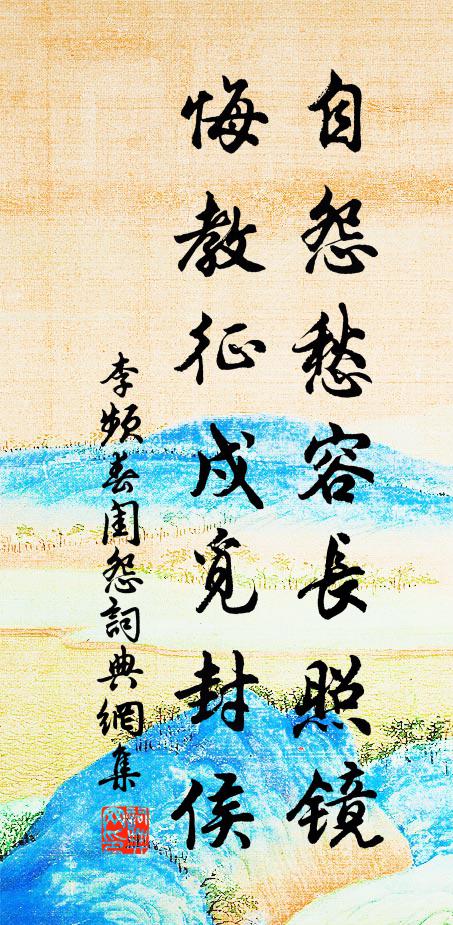 自怨愁容長照鏡
悔教征戍覓封侯
李頻春閨怨詞典網集